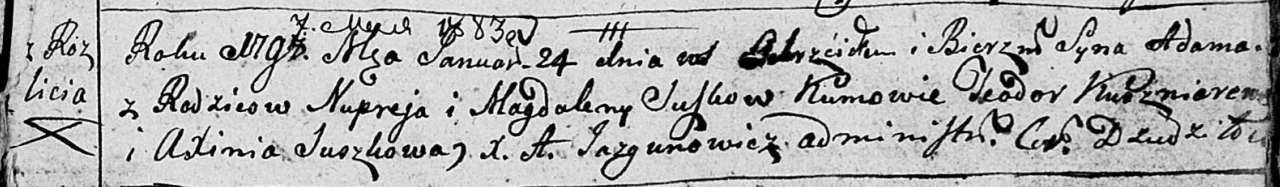 z Roz
licia
Roku 1797. Mca Januar. 24 dnia ws Chrzcidłem i Bierzm Syna Adama
z Rodzicow Nupreja i Magdaleny Suszkow Kumowie Teodor Kuszniarew
i Axinia Suszkowa, x. A. Jazgunowicz administr. Cer. Dziedziło